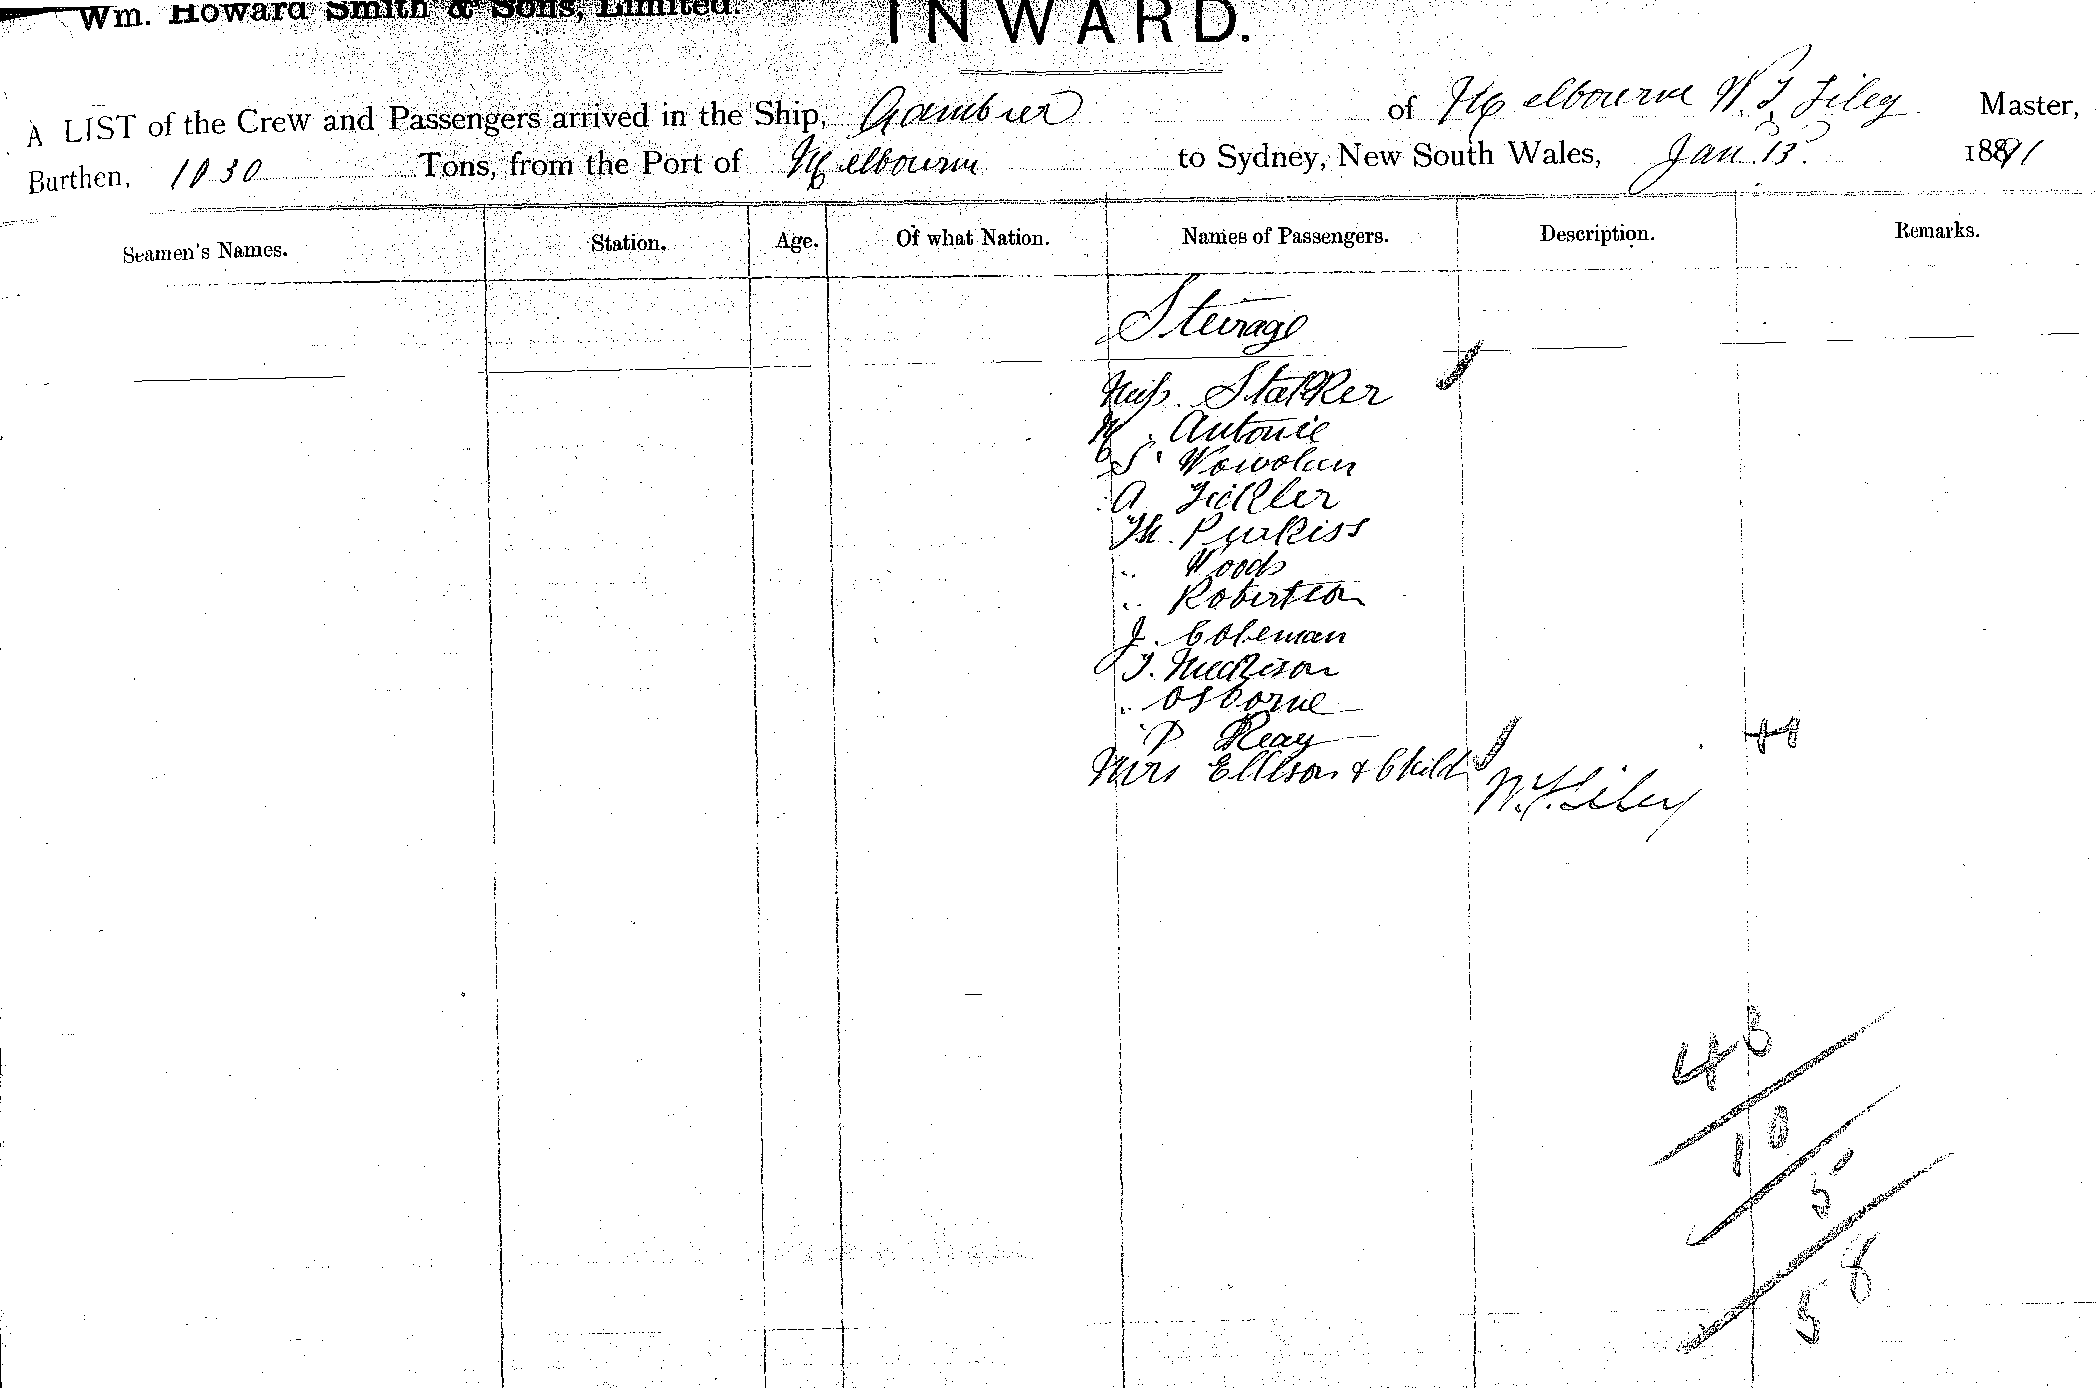 Wm. Howard Smith & Sons, Limited.
INWARD.
A LIST of the Crew and Passengers arrived in the Ship, Gambier of Melbourne W. F. Siley Master,
Burthen, 1030 Tons, from the Port of Melbourne to Sydney, New South Wales, Jan 13. 1891
Seamen's Names. Station. Age. Of what Nation. Names of Passengers. Description. Remarks.
Steerage
Miss. Stalker
M. Antonie
S.
A
M. Purkiss
" Woods
" Robertson
J. Coleman
T.
" Osborne
P Reay
Mrs Ellison & Child
W. F. Siley
10
5
58